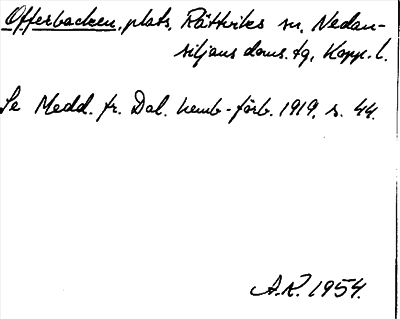 Offerbacken, plats, Rättviks sn, Nedan-
siljans doms. tg, Kopp. l.
Se Medd. fr. Dal. hemb.-förb. 1919, s. 44.
A.R. 1954.